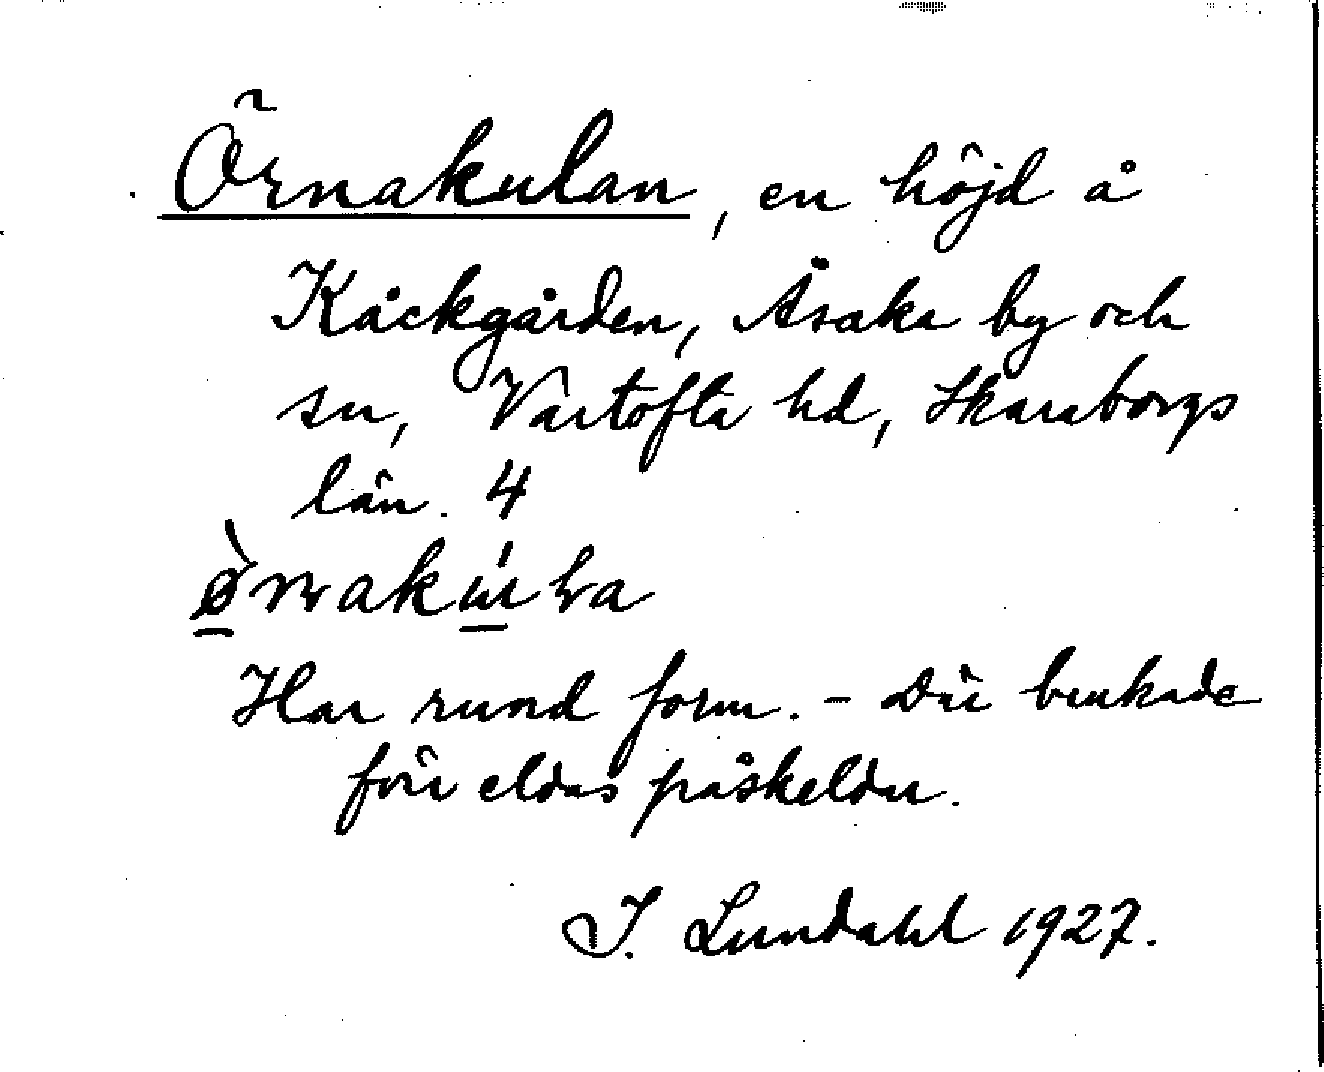 Örnakulan, en höjd å
Kåckgården, Åsaka by och
sn, Vartofta hd, Skaraborgs
län. 4
Har rund form. – Där brukade
förr eldas påskeldar.
I. Lundahl 1927.